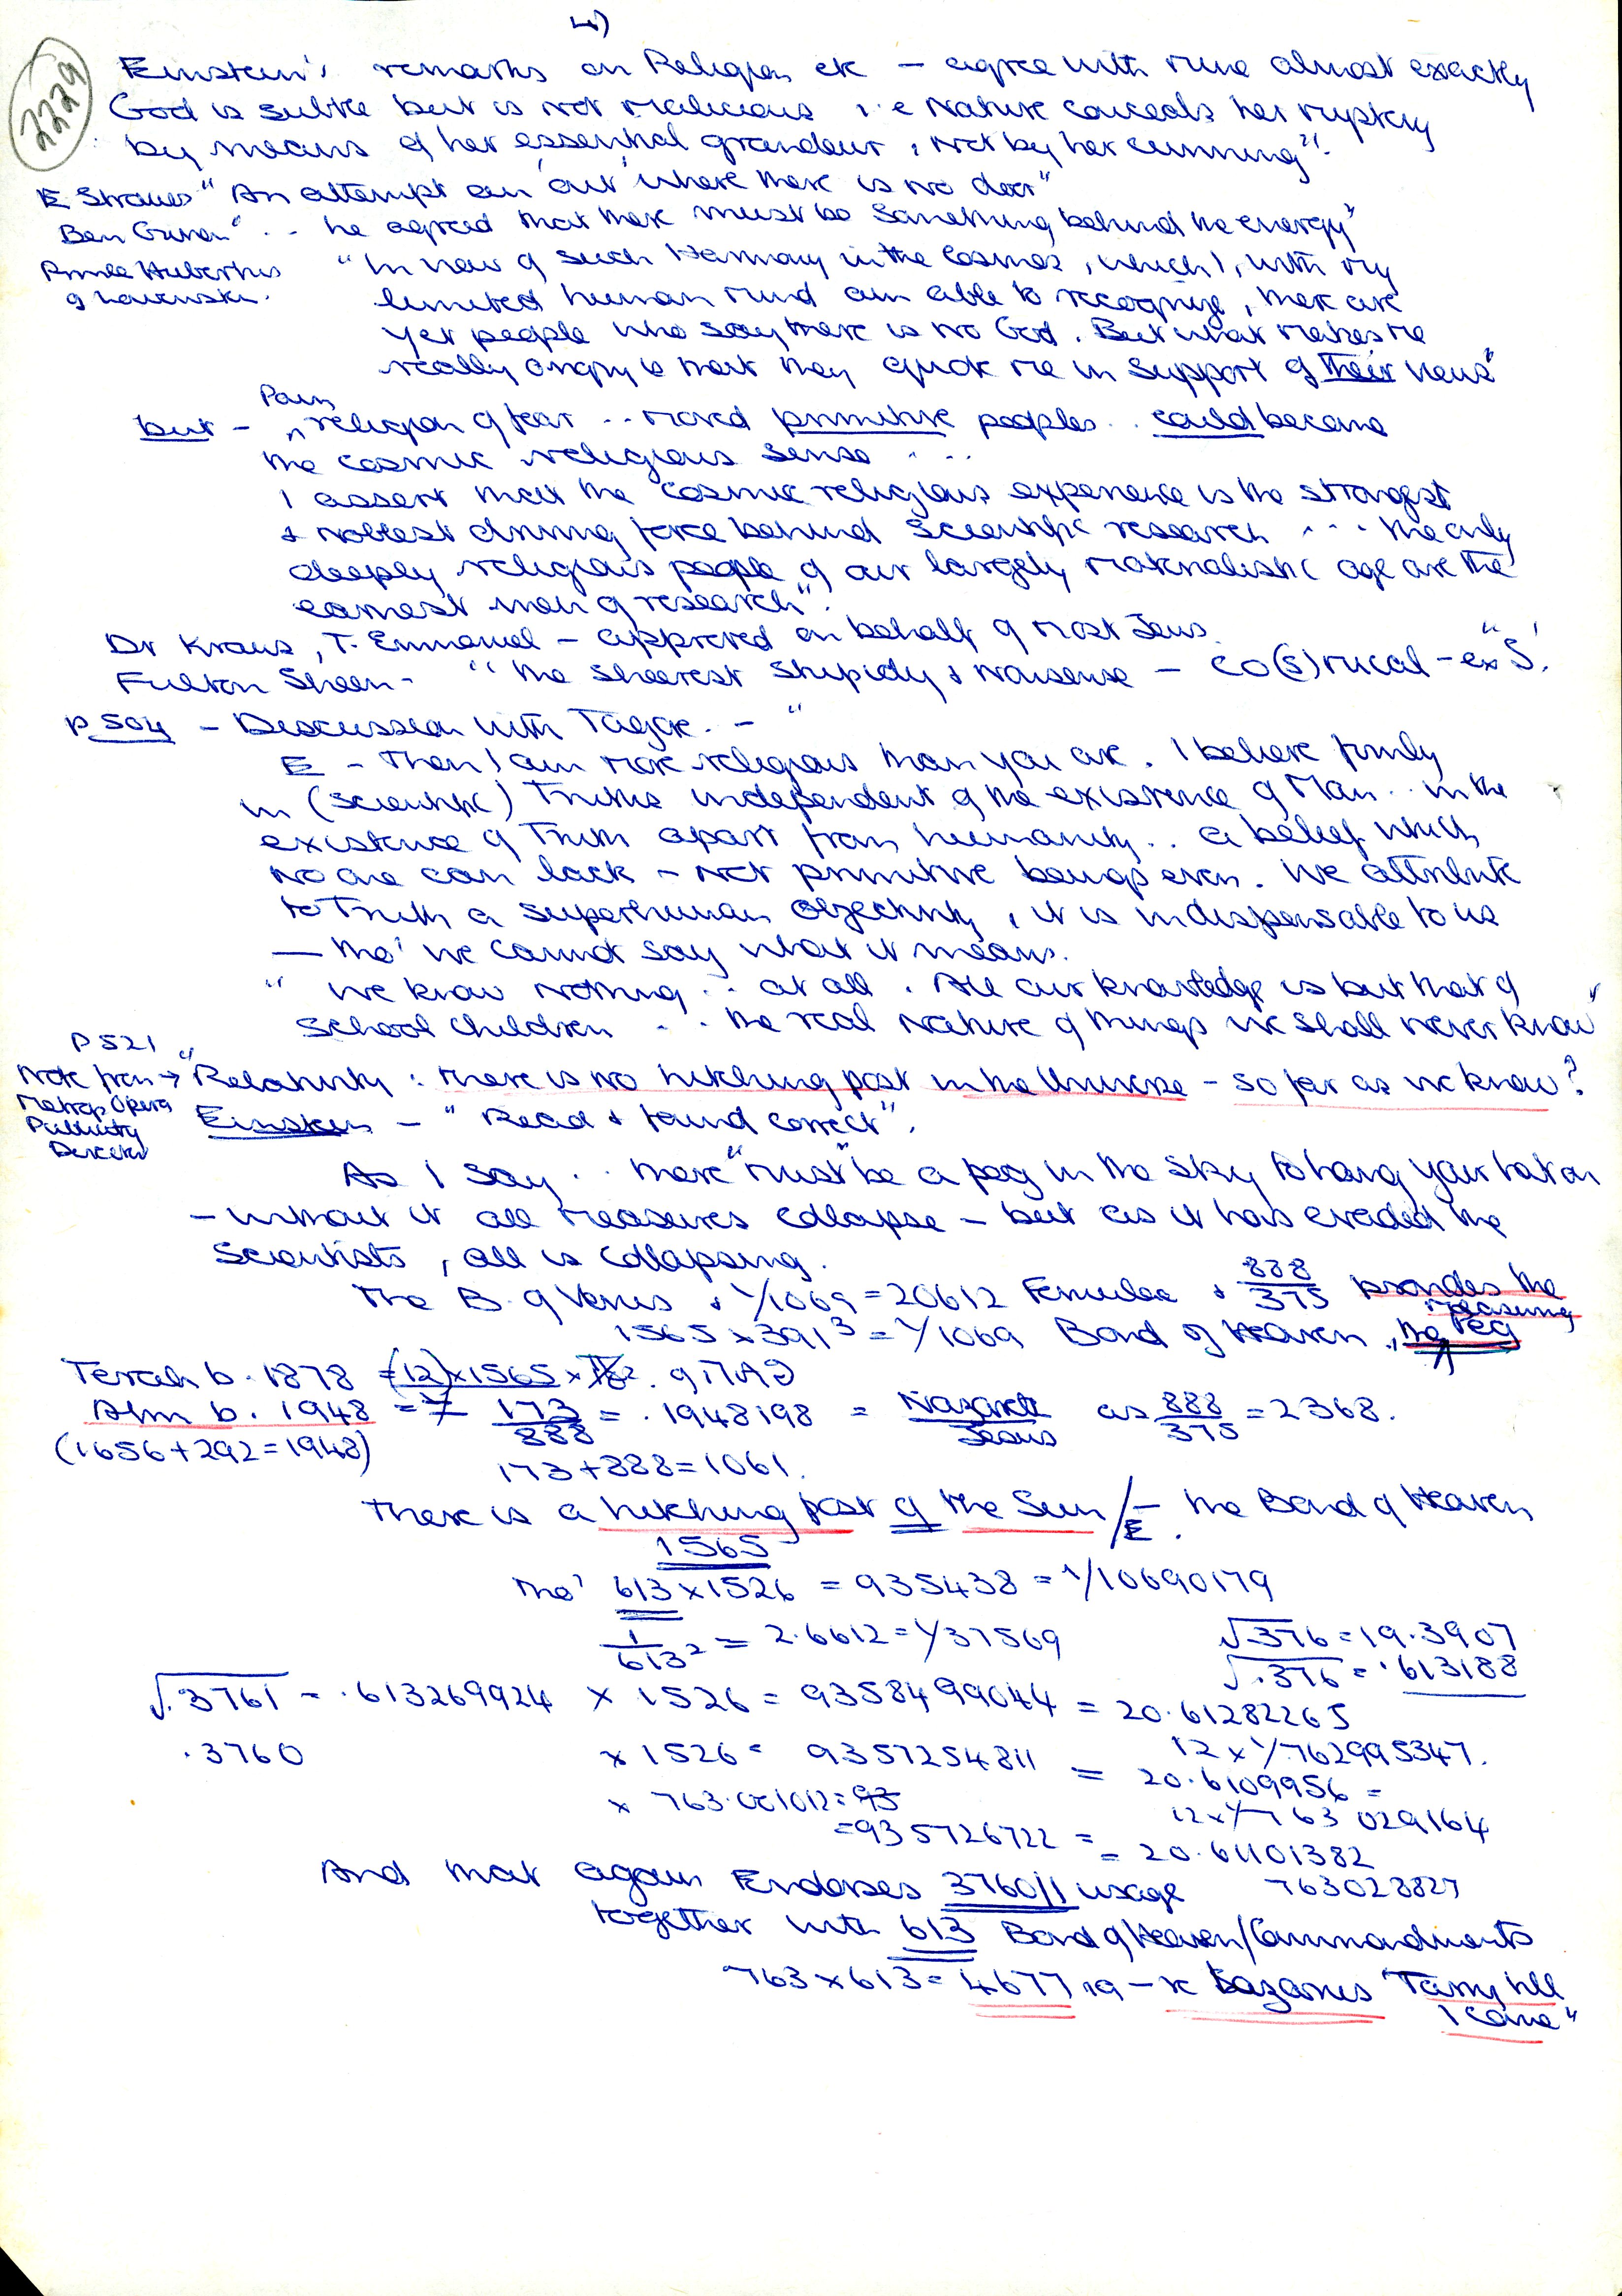 4)
2229
Einstein's remarks on Religion etc – agree with mine almost exactly
God is subtle but is not malicious i.e Nature conceals her mystery
by means of her essential grandeur, not by her cunning".
E Straus "An attempt an 'out' where there is no door"
Ben Gurion ".. he agreed that there must be something behind the energy"
Prince Hubertus "In view of such Harmony in the Cosmos, which I, with my
of limited human mind am able to recognize, there are
yet people who say there is no God. But what makes me
really angry is that they quote me in support of their views"
Pain
but – "religion of fear .. moved primitive peoples .. could become
the cosmic religious sense ...
I assert that the cosmic religious experience is the strongest
& noblest driving force behind scientific research ... the only
deeply religious people of our largely materialistic age are the
earnest men of research".
Dr Kraus, T. Emmanuel – approved on behalf of most Jews.
Fulton Sheen – "the sheerest stupidity & nonsense – co(s)mical – ex "S'.
P 504 – Discussion with Tagore. – "
E – Then I am more religious than you are. I believe firmly
in (scientific) Truths independent of the existence of Man .. in the
existence of Truth apart from humanity .. a belief which
no one can lack – not primitive beings even. We attribute
to Truth a superhuman objectivity, it is indispensable to us
— tho' we cannot say what it means.
" We know nothing .. at all. All our knowledge is but that of
school children .. the real nature of things we shall never know"
P 521
Note from → "Relativity: there is no hitching post in the Universe – so far as we know?
Metrop Opera
Publicity
Director
Einstein – "Read & found correct".
As I say .. there "must" be a peg in the sky to hang your hat on
– without it all measures collapse – but as it has evaded the
Scientists, all is collapsing.
The B. of Venus & 1/1069 = 20612 Femulae & 888/375 provides the
measuring
1565 x 391³ = 1/1069 Band of Heaven, the Peg
Terah b. 1878 = (12) x 1565 x
Abm b. 1948 = 173/888 = .1948198 = Nazareth/Jesus as 888/375 = 2368.
(1656+292=1948)
173+888=1061.
There is a hitching post of the Sun/E – the Band of Heaven
1565
Tho' 613 x 1526 = 935438 = 1/10690179
1/613² = 2.6612 = 1/37569
√376 = 19.3907
√.376 = .613188
√.3761 = .613269924 x 1526 = 9358499044 = 20.61282265
12 x 1/7629953 47.
.3760 x 1526 = 9357254811 = 20.6109956 =
12 x 1/763029164
x 763.001012 = 93
= 935726722 = 20.61101382
763028827
And that again Endorses 3760/1 usage
together with 613 Band of Heaven/Commandments
763 x 613 = 467719 – re Lazarus "Tarry till
I come"